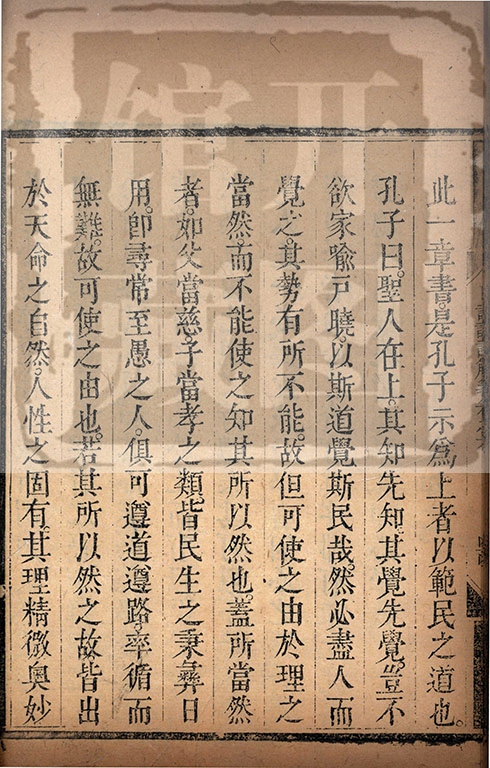 此一章書。是孔子示爲上者以範民之道也。
孔子曰。聖人在上。其知先知。其覺先覺。豈不
欲家喻戶曉。以斯道覺斯民哉。然必盡人而
覺之。其勢有所不能。故但可使之由於理之
當然。而不能使之知其所以然也。蓋所當然
者。如父當慈。子當孝之類。皆民生之秉彝日
用。卽尋常至愚之人。俱可遵道遵路。率循而
無難。故可使之由也。若其所以然之故。皆出
於天命之自然。人性之固有。其理精微奧妙